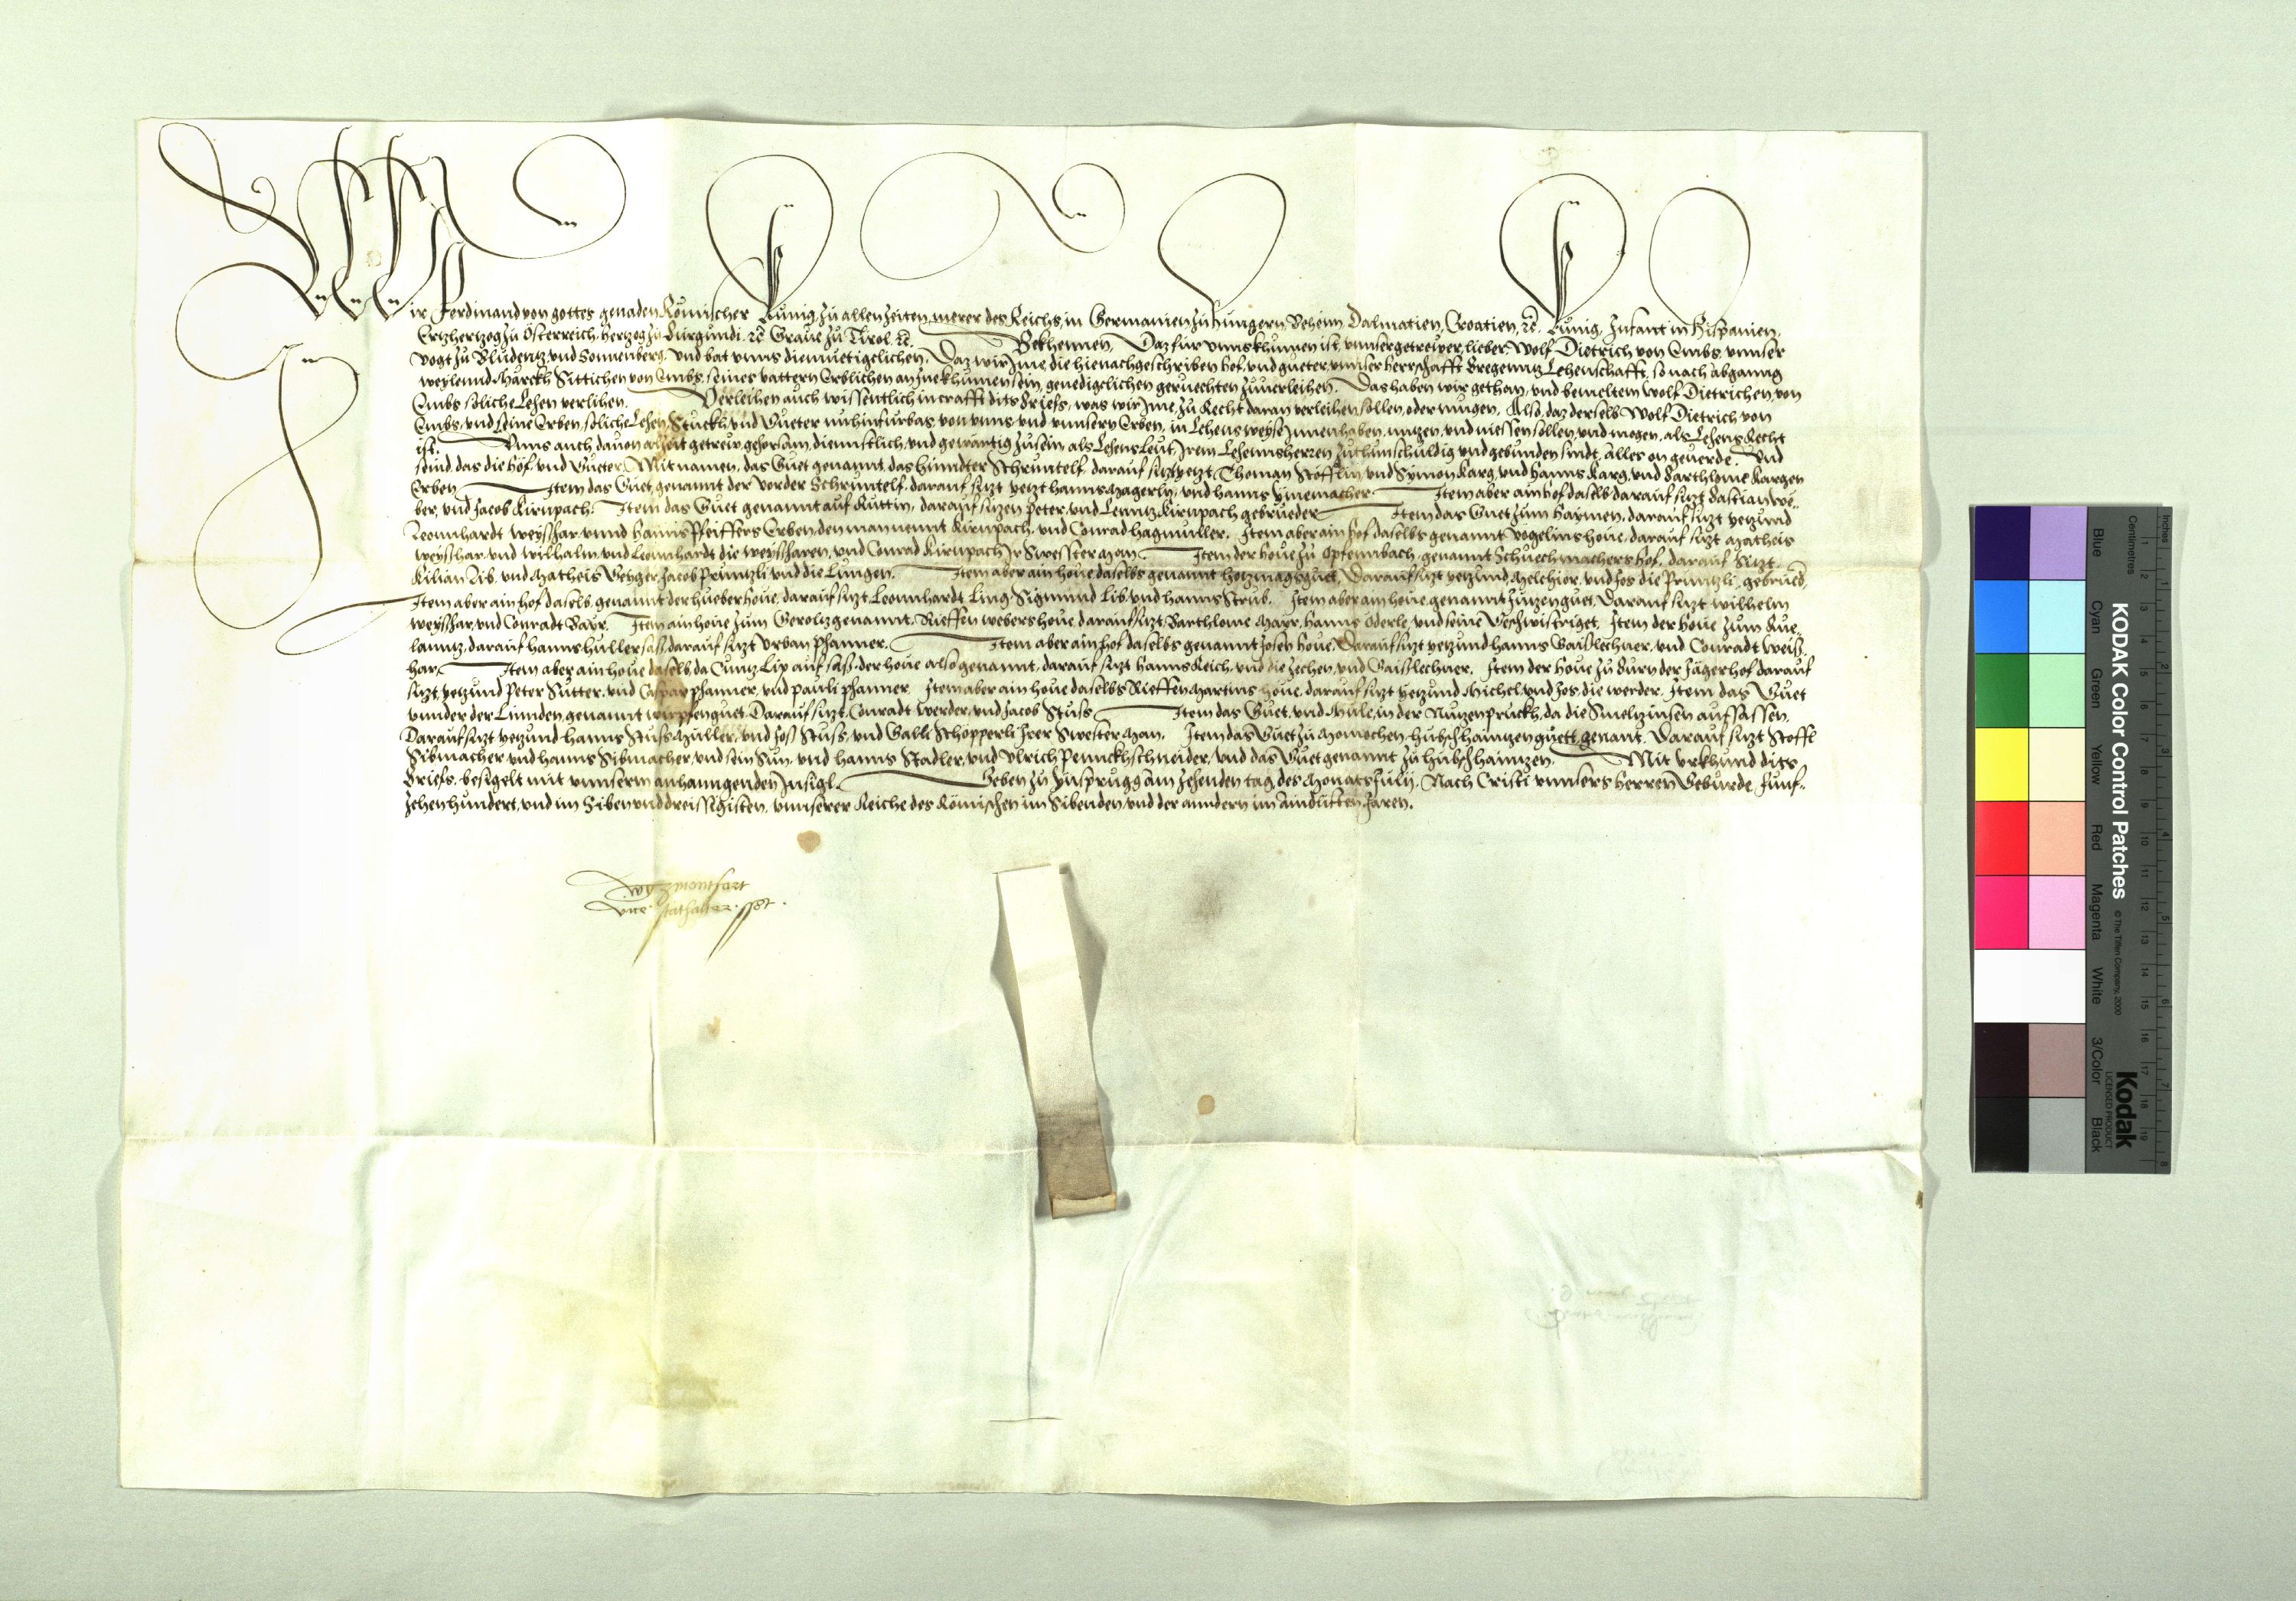 Wir Ferdinand von gottes genaden Römischer Kunig zu allen zeiten merer des Reichs, in Germanien zu Hungern Beheim Dalmatien, Croatien, etc. Kunig, Infant in Hispanien,
Ertzhertzog zu Österreich, Hertzog zu Burgundi, etc. Graue zu Tirol, etc. Bekhennen, Daz für vnns khumen ist, vnnser getrewer, lieber, Wolf Dietrich von Embs, vnnser
Vogt zu Bludentz, vnd Sonnenberg, vnd bat vnns diemuetigclichen, Daz wir Jme die hienachgeschriben hof, vnd gueter, vnnser Herrschafft Bregenntz Lehenschafft, so nach abganng
weylennd Marckh Sittichen von Embs, seines vattern Erblichen an jne khumen sein, genedigclichen geruechten zuuerleihen. Das haben wir gethan, vnd bemeltem Wolf Dietrichen, von
Embs soliche Lehen verlihen. Verleihen auch wissentlich in crafft dits briefs, was wir Jme, zu Recht daran verleihen sollen, oder mugen, Also, daz derselb Wolf Dietrich von
Embs, vnd seine Erben, soliche Lehen, Stuckh, vnd Gueter nu hinfurbas, von vnns vnd vnnsern Erben, in Lehens weyse Jnnenhaben, nutzen, vnd niessen sollen, vnd mogen, als Lehens Recht
ist. Vnns auch, dauon allzeit getrew, gehorsam, diennstlich, vnd gewärtig zu sein, als Lehens Leut, Jrem Lehenns herren zu thun schuldig vnd gebunden sindt, alles on geuerde. Vnd
seind, das die höf, vnd Gueter, Mit namen, das Guet genannt, das hinndter Schruntelf darauf sitzt yetzt, Thoman Stöfflin, vnd Symon Karg, vnd Hanns Karg, vnd Barthlome Kargen
Erben Item das Guet, genannt der vorder Schruntelf, darauf sitzt yetzt Hanns Magerly, vnd Hanns Ymemacher Item aber ain hof daselb darauf sitzt, Bastian we„
ber, vnd Jacob Kirnpach: Item das Guet genannt auf Kuttin, darauf sitzen Peter, vnd Lenntz, Kirnpach gebrueder Item das Guet zum Haymen, darauf sitzt yetzund
Leonnhardt weysshar, vnnd Hanns Pfeiffers Erben, den man nennt Kirnpach, vnd Conrad Hagmuller. Item aber ain hof daselbs genannt vogelins houe, darauf sitzt Matheis
weyshar, vnd wilhalm, vnd Leonnhardt die weyssharen, vnd Conrad Kirnpach Jr Swesster Man Item der houe zu Opfennbach, genannt Schuechmachers hof, darauf Sitzt
Kilian Lib, vnd Matheis Geyger, Jacob Pruntzli vnd die Lungen. Item aber ain houe daselbs genannt Hotzmags guet, Darauf sitzt yetzund Melchior, vnd Jos die Pruntzli, gebrued,
Item aber ain hof daselb, genannt der hueber houe, darauf sitzt Leonnhardt Ling, Sigmund Lib, vnd Hanns Strub. Item aber ain houe, genannt Juntzen guet, Darauf sitzt wilhelm
weysshar, vnd Conradt Bayr. Item ain houe zum Gerolts genannt, Rieffen webers houe, darauf sitzt, Barthlome Mayr, Hanns Oderle, vnd seine Geschwistriget. Item der houe zum Rue„
lanntz, darauf Hanns Huller saß, darauf sitzt Vrban Pfanner. Item aber ain hof daselbs genannt Josen houe, Darauf sitzt yetzund Hanns Gaißlechner, vnd Conradt weiß„
har. Item aber ain houe daselb, da Cuntz Lip auf saß, der houe also genannt, darauf sitzt Hanns Reich, vnd die Zechen, vnd Gaißlechner. Item der houe zu Burn der Jäger hof darauf
sitzt, yetzund Peter Sutter, vnd Caspar pfanner, vnd pauli pfanner Item aber ain houe daselbs Rieffen Martins houe, darauf sitzt yetzund Michel, vnd Jos, die werder. Item das Guet
vnnder der Linnden, genannt wirpfen guet, Darauf sitzt, Conradt werder, vnd Jacob Stuss Item das Guet, vnd Mule, in der Nutzenpruckh, da die Smeltzinsen auf sassen,
Darauf sitzt yetzund Hanns Stuss Muller, vnd Joß Stuss, vnd Galle Schopperli Jrer Swester Man. Item das Guet zu Momöchen hubsch haintzen guett, genant, Darauf sitzt Stoffl
Sibmacher vnd Hanns Sibmacher, vnd sein Sun, vnd Hanns Stadler, vnd Vlrich Pennckhschneider, vnd das Guet genannt zu hubsch haintzen. Mit vrkhund dits
Briefs, besigelt mit vnnserm anhanngenden Jnsigl. Geben zu Ynsprugg am zehenden tag, des Monats Julij, Nach Cristi vnnsers herren Geburde, funf„
zehenhundert, vnd im Siben vnd dreissigisten, vnnserer Reiche des Römischen im Sibenden, vnd der anndern im aindliften Jaren.
Montfort
vice Stathalter. sst.
KODAK Color Control Patches
© The Tiffen Company, 2000
Kodak
LICENSED PRODUCT
Blue Cyan Green Yellow Red Magenta White 3/Color Black
Inches 1 2 3 4 5 6 7 8
Centimetres 1 2 3 4 5 6 7 8 9 10 11 12 13 14 15 16 17 18 19